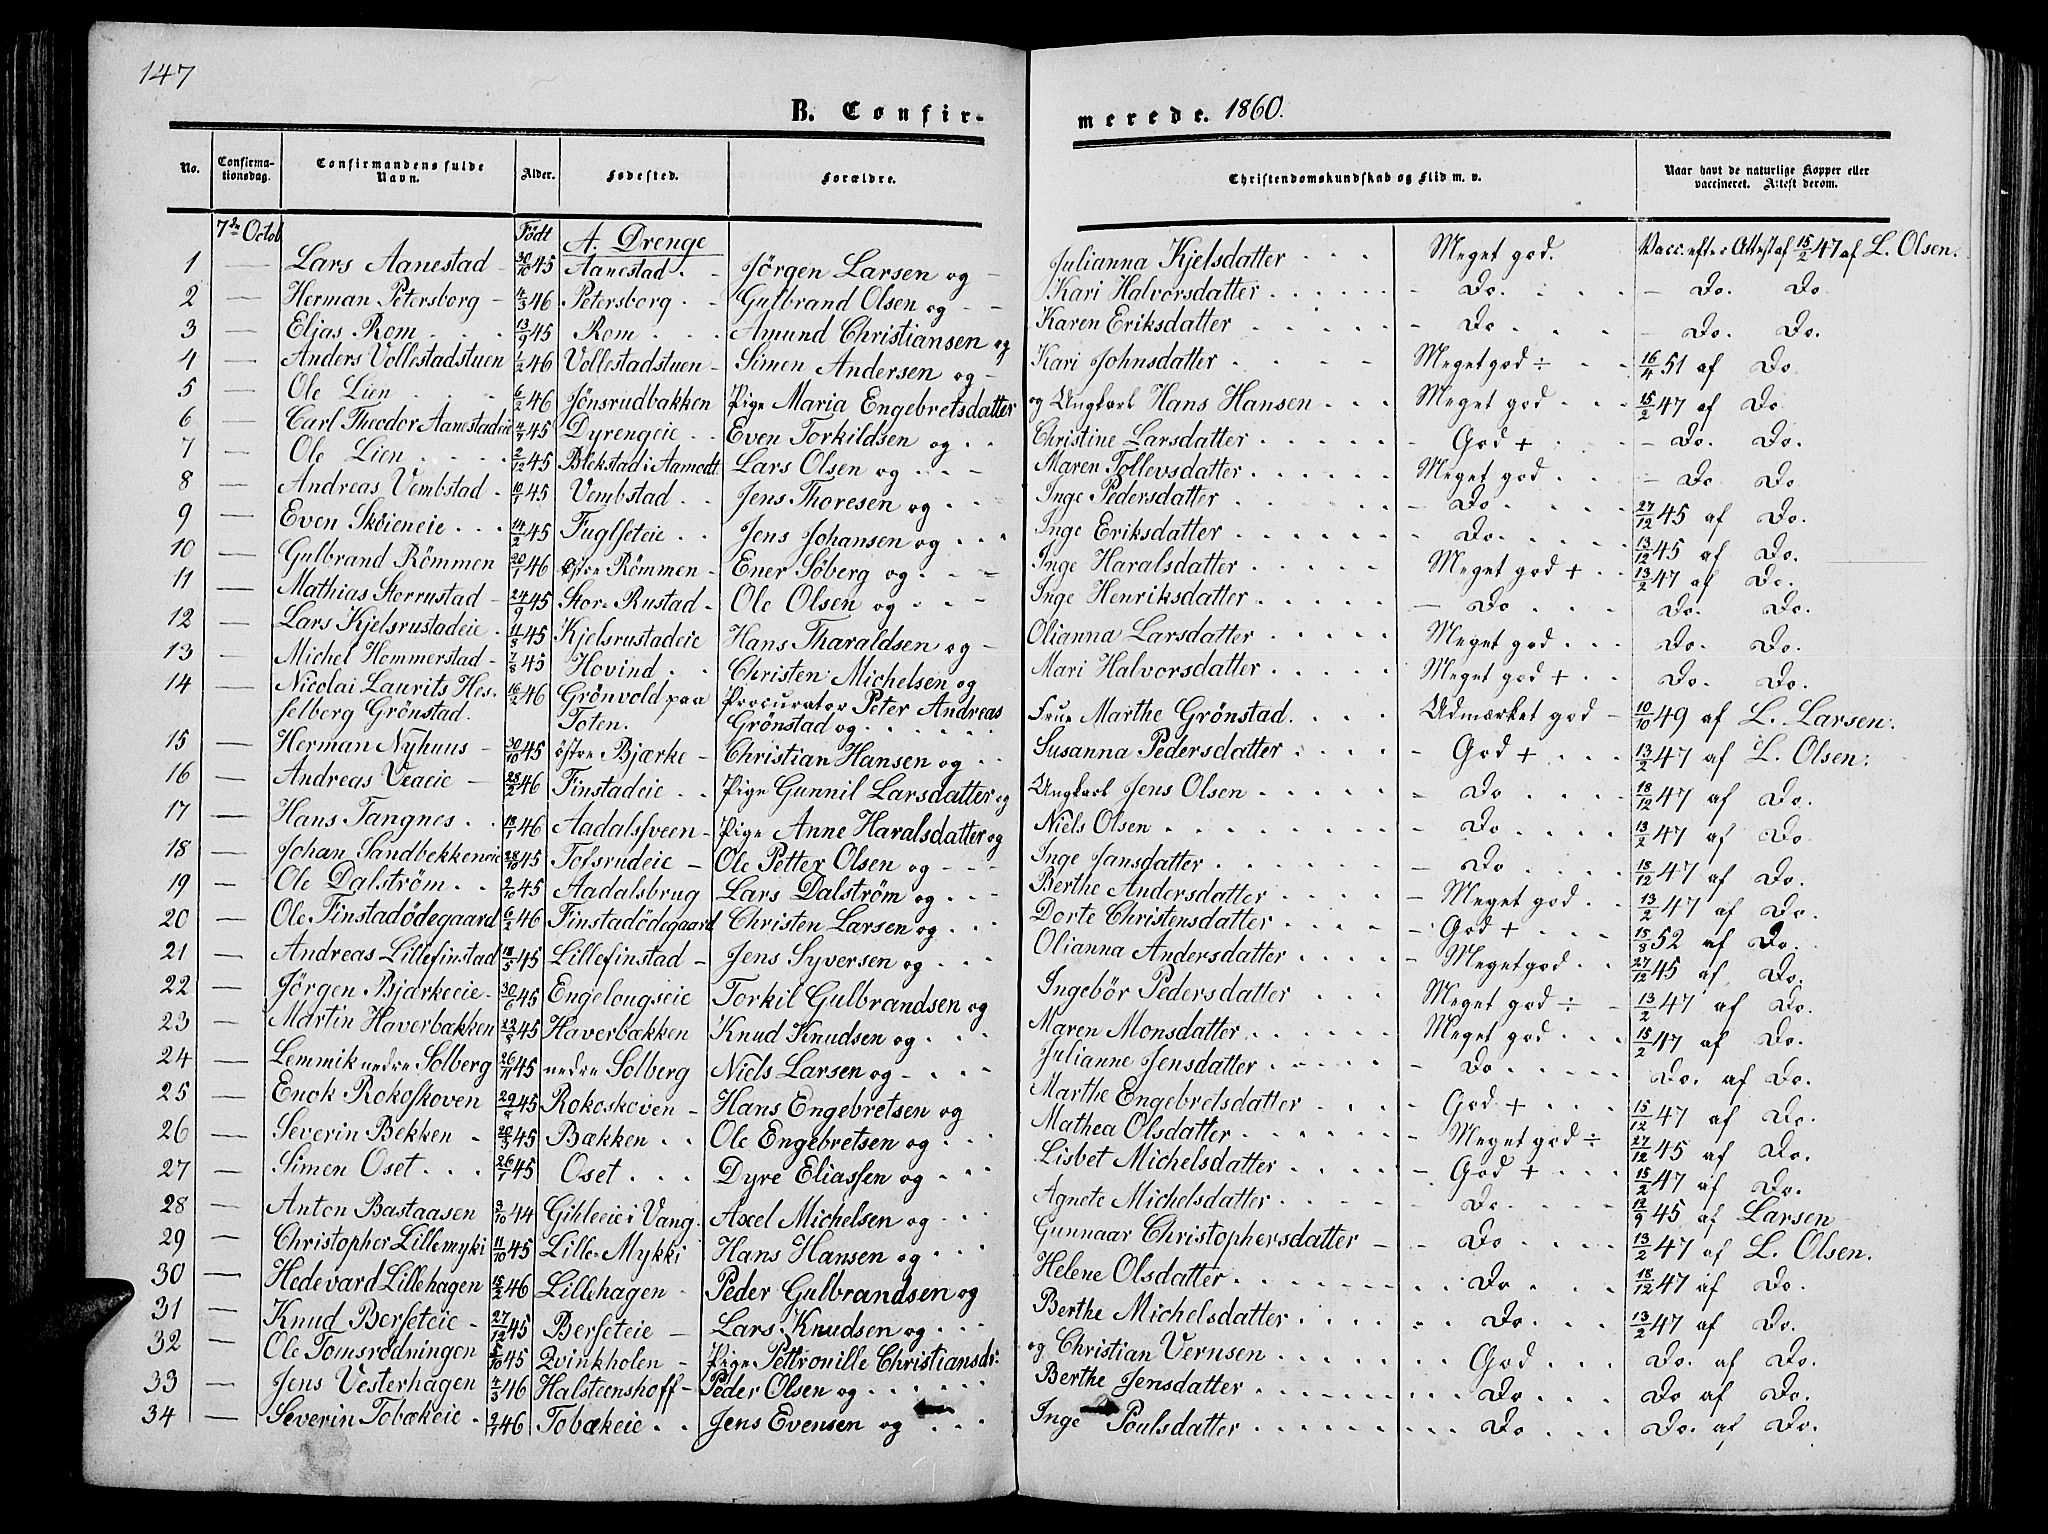 147
B. Confirmerede. 1860.
No. Confirmationsdag. Confirmandens fulde Navn. Alder. Fødested. Forældre. Christendomskundskab og Flid m. v. Naar havt de naturlige Kopper eller vaccineret. Attest derom.
7de Octob Født A. Drenge
1 — Lars Aanestad - 30/10 45 Aanestad . - Jörgen Larsen og - Julianna Kjelsdatter . . . Meget god. Vacc. efter Attest af 15/2 47 af L. Olsen.
2 — Herman Petersborg - 4/3 46 Petersborg . - Gulbrand Olsen og - - Kari Halvorsdatter . . . - Do. - Do. Do.
3 — Elias Rom . . . 13/9 45 Rom . . . Amund Christiansen og Karen Eriksdatter . . . - Do . . . - Do. Do.
4 — Anders Vollestadstuen 1/2 46 Vollestadstuen - Simen Andersen og - Kari Johnsdatter . . - Meget god ÷ 16/4 51 af Do.
5 — Ole Lien . . . 6/2 46 Jönsrudbakken Pige Maria Engebretsdatter og Ungkarl Hans Hansen . . . Meget god . . . 15/2 47 af Do
6 — Carl Theodor Aanestadeie 4/7 45 Dyrengeie . . Even Torkildsen og . . Christine Larsdatter . . . - God + . - Do. Do.
7 — Ole Lien . . . 2/12 45 Blekstad i Aamodt Lars Olsen og . . - Maren Tollevsdatter . . . Meget god . . . - Do Do
8 — Andreas Vembstad . 10/1 45 Vembstad . . Jens Thoresen og . . Inge Pedersdatter . . . - Do . . . 27/12 45 af Do.
9 — Even Sköieneie . . . 14/2 45 Fuglseteie . . Jens Johansen og . . . Inge Eriksdatter . . . - Do. . . . 13/12 45 af Do.
10 — Gulbrand Römmen 20/1 46 østre Römmen - Ener Söberg og . - - Inge Haralsdatter . . . Meget god + . . 13/2 47 af Do.
11 — Mathias Storrustad - 24/9 45 Store Rustad - Ole Olsen og . . - Inge Henriksdatter . . . - Do . . . Do. Do.
12 — Lars Kjelsrustadeie . 11/8 45 Kjelsrustadeie Hans Tharaldsen og - Olianna Larsdatter . . . Meget god . . . Do Do.
13 — Michel Hommerstad - 7/8 45 Hovind . . Christen Michelsen og Mari Halvorsdatter . . . Meget god + . . Do. Do.
14 — Nicolai Laurits Hes- 16/2 46 Grönvold paa Procurator Peter Andreas
selberg Grönstad. Toten. Grönstad og . . . Frue Marthe Grönstad . . . Udmærket god - 10/10 49 af L. Larsen.
15 — Herman Nyhuus - 30/10 45 östre Bjærke - Christian Hansen og . . Susanna Pedersdatter . . . - God + . . . 13/2 47 af L. Olsen.
16 — Andreas Veaeie - 28/2 46 Finstadeie . . Pige Gunnil Larsdatter og Ungkarl Jens Olsen . . . - Do . . . 18/12 47 af Do.
17 — Hans Tangnes . . 18/1 46 Aadalssveen - Pige Anne Haralsdatter og Niels Olsen . . . - Do . . . 13/2 47 af Do.
18 — Johan Sandbekkeneie 28/10 45 Tofsrudeie - Ole Petter Olsen og - - - Inge Jansdatter . . . - Do . . . 18/12 47 af Do.
19 — Ole Dalström . . 9/10 45 Aadalsbrug Lars Dalström og . . - Berthe Andersdatter . . . - Meget god . . 13/2 47 af Do.
20 — Ole Finstadödegaard 6/2 46 Finstadödegaard Christen Larsen og . . . Dorte Christensdatter . . . - God + . . . 15/8 52 af Do.
21 — Andreas Lillefinstad 18/5 45 Lillefinstad - Jens Syversen og . . . Olianna Andersdatter . . . - Meget god . . 27/12 45 af Do.
22 — Jörgen Bjærkeeie - 30/6 45 Engelougseie Torkil Gulbrandsen og Ingebör Pedersdatter . . . Meget god ÷ - 13/2 47 af Do.
23 — Martin Haverbækken 23/8 45 Haverbækken Knud Knudsen og . . . Maren Monsdatter . . . Meget god . . . 15/2 47 af Do.
24 — Lemmik nedre Solberg 26/11 45 nedre Solberg Niels Larsen og - . . . Julianne Jensdatter . . . - Do . . . Do. af Do.
25 — Enok Rokoskoven 29/8 45 Rokoskoven - Hans Engebretsen og Marthe Engebretsdatter . . . - God + . . . 15/12 47 af Do.
26 — Severin Bekken . 20/3 45 Bækken . . Ole Engebretsen og . . . Mathea Olsdatter . . . - Meget god ÷ 27/12 45 af Do.
27 — Simen Oset . . . 26/7 45 Oset . . . Dyre Eliassen og . . . Lisbet Michelsdatter . . . - God + . . . 15/2 47 af Do.
28 — Anton Bastaasen 3/10 44 Gihleeie i Vang. Axel Michelsen og - . . Agnete Michelsdatter . . . - Do . . . 12/9 45 af Larsen
29 — Christopher Lillemyki 11/10 45 Lille Mykki Hans Hansen og . . . Gunnaar Christophersdatter - - Do . . . 13/2 47 af L. Olsen.
30 — Hedevard Lillehagen 15/2 46 Lillehagen - Peder Gulbrandsen og Helene Olsdatter . . . Do . . . 18/12 47 af Do.
31 — Knud Berseteie - 27/12 45 Berseteie - Lars Knudsen og . . . Berthe Michelsdatter . . . Do. . . . 13/2 47 af Do.
32 — Ole Tomsrödningen 5/10 45 Qvinkholen - Pige Pettronille Christiansdr: og Christian Vernsen . . . God . . . Do. af Do.
33 — Jens Vesterhagen 4/3 46 Halsteenshoff - Peder Olsen og . . . Berthe Jensdatter . . . Do . . . Do af Do.
34 — Severin Tobækeie . 2/7 46 Tobækeie . . Jens Evensen og . . . Inge Poulsdatter . . . Do . . . Do. af Do.